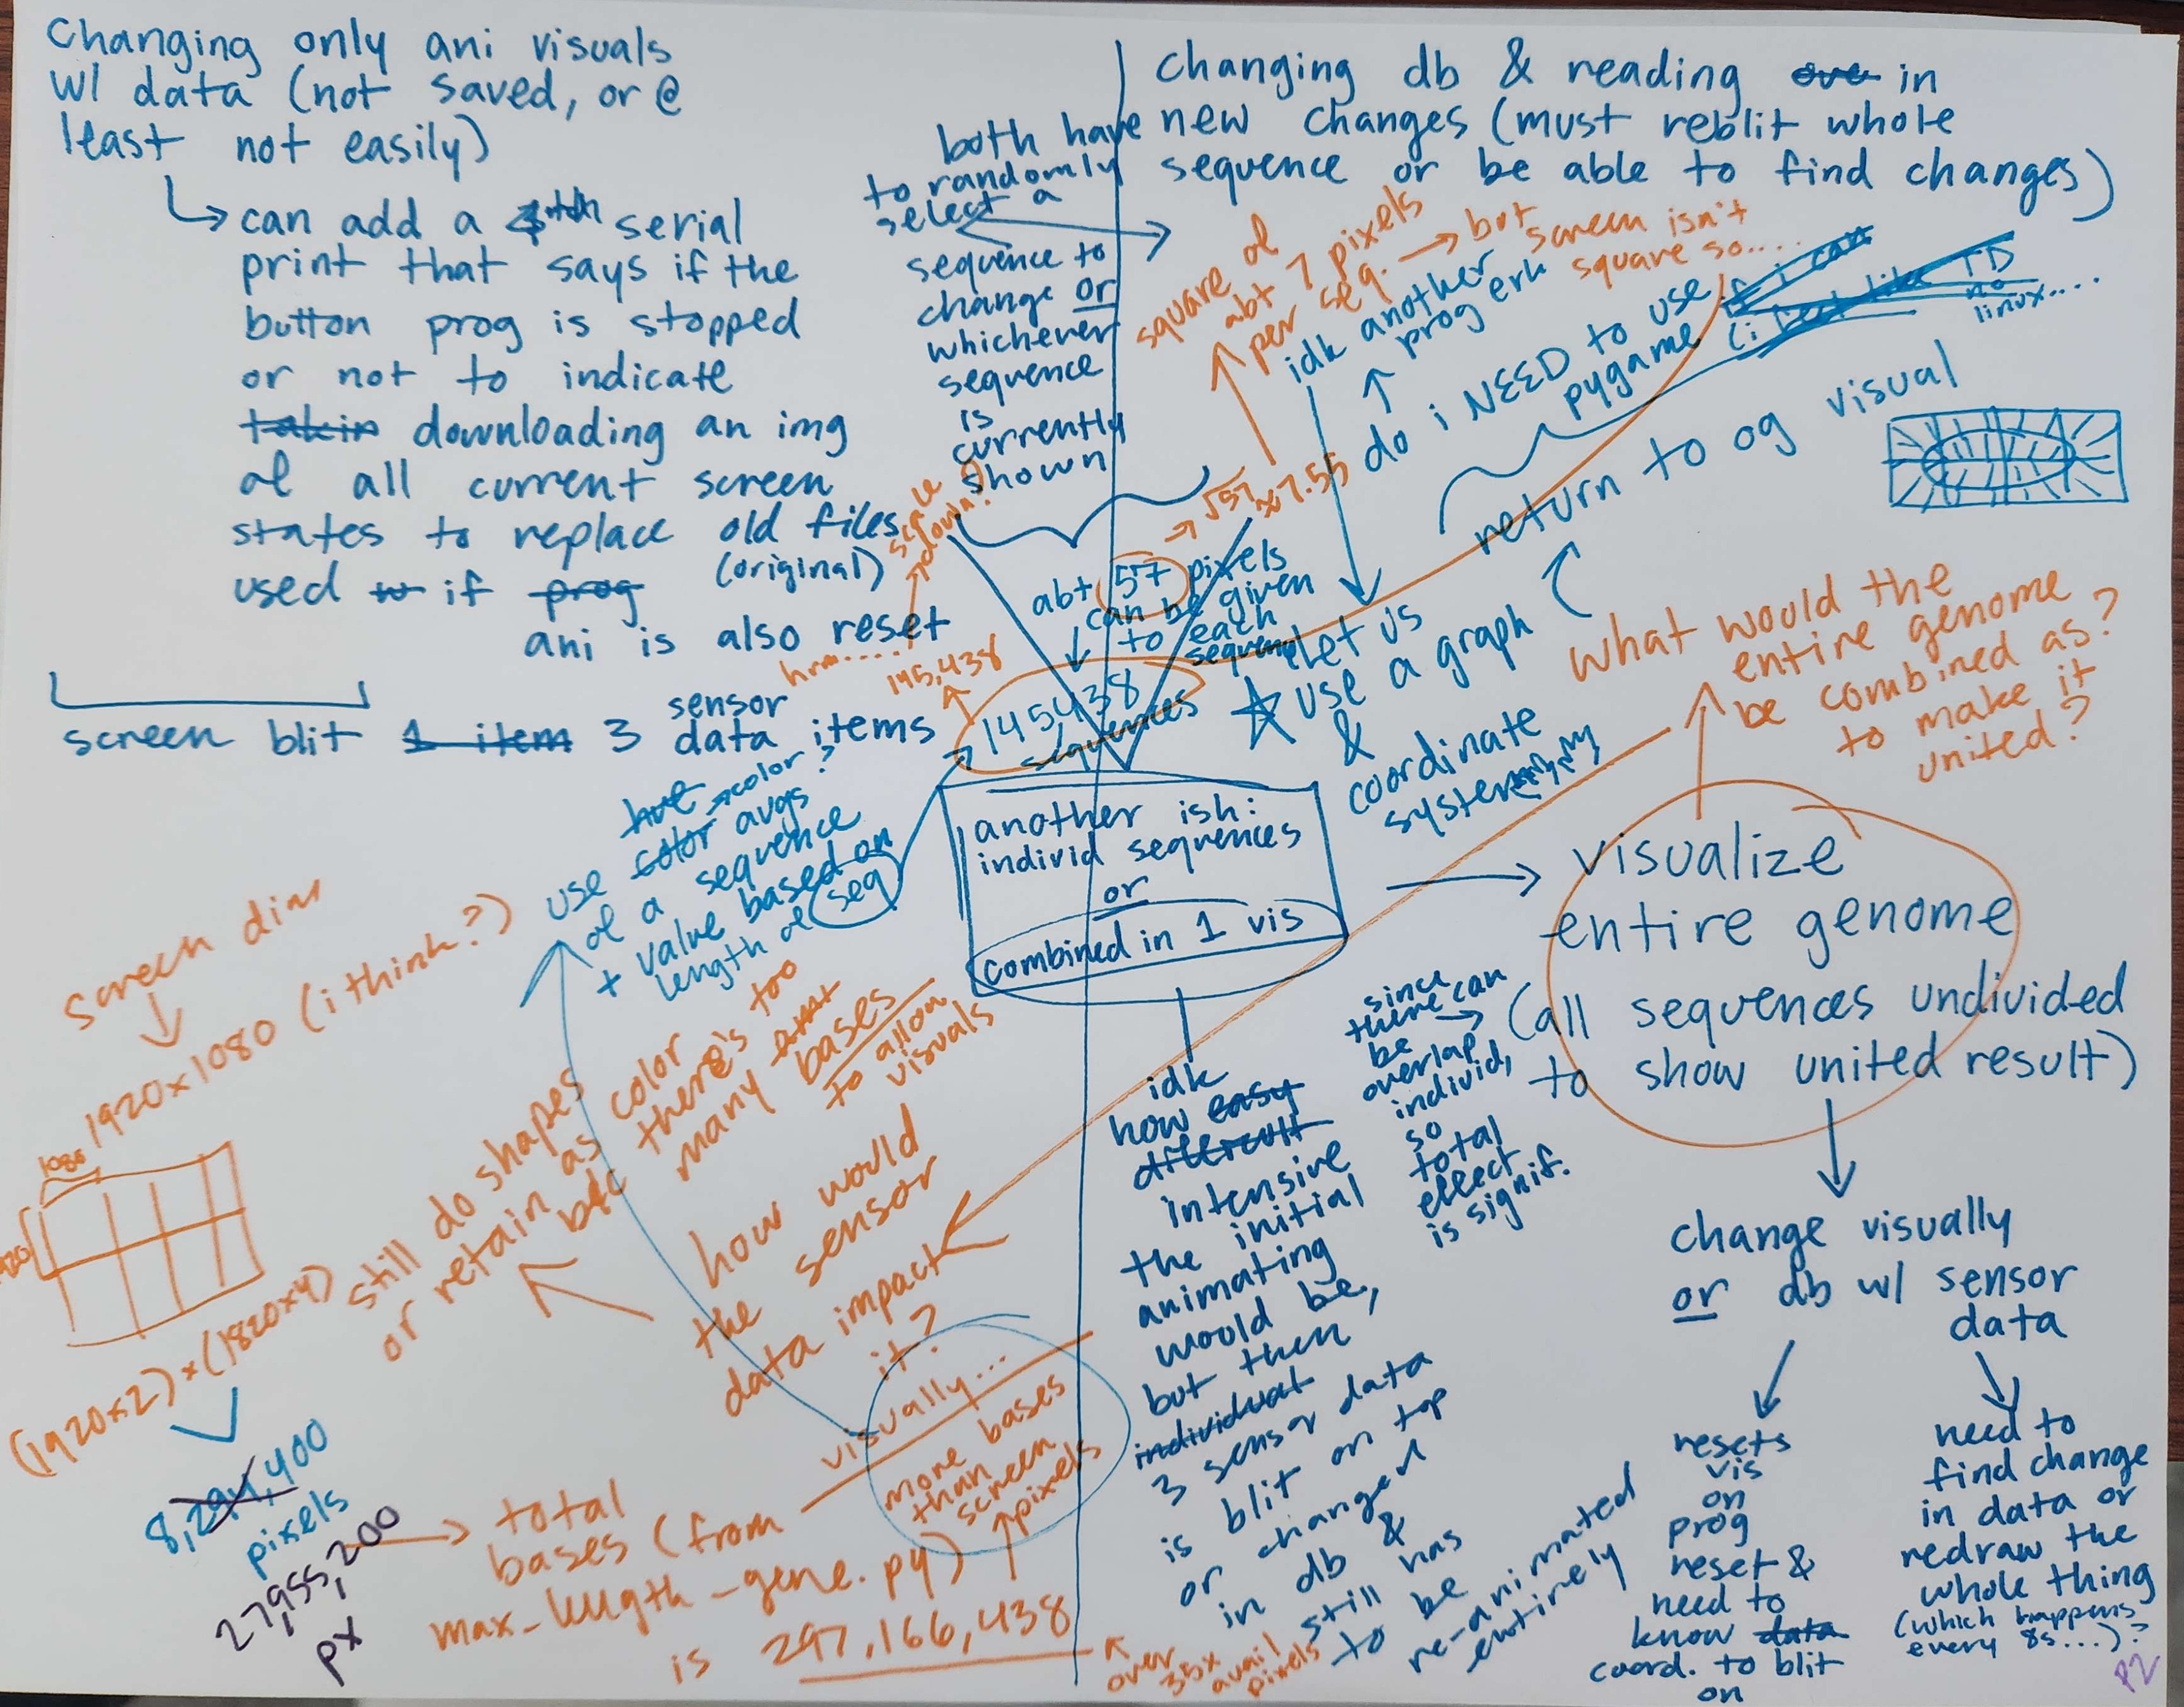 Changing only ani visuals
w/ data (not saved, or @
least not easily)
can add a serial
print that says if the
button prog is stopped
or not to indicate
takin downloading an img
of all current screen
states to replace old files
(original)
used to if prog
ani is also reset
screen blit 1 item 3 sensor
data items
changing db & reading ove in
new changes (must reblit whole
sequence or be able to find changes)
both have
to randomly
select a
sequence to
change or
whichever
sequence
is
currently
shown
square of
abt 7 pixels
per seq. → but
screen isn't
square so....
idk another
prog erk
do i NEED to use
pygame (i
if i can
like TD
no
linux....
return to og visual
scale
down?
hrm.....
145,438
abt 57 pixels
can be given
to each
sequence
→ √57 ≈ 7.55
145,438
sequences
let us
use a graph
&
coordinate
system
What would the
entire genome
be combined as?
to make it
united?
use color avgs
color?
of a sequence
+ value based on
length of seq
another ish:
individ sequences
or
combined in 1 vis
visualize
entire genome
(all sequences undivided
to show united result)
since
there can
be
overlap
individ,
so
total
effect
is signif.
change visually
or db w/ sensor
data
resets
vis
on
prog
reset &
need to
know data
coord. to blit
on
need to
find change
in data or
redraw the
whole thing
(which happens
every 8s...)?
P2
idk
how easy
difficult
intensive
the initial
animating
would be,
but then
individual
3 sensor data
is blit on top
or changed
in db &
still has
to be
re-animated
entirely
screen dim
1920x1080 (i think?)
1080
(1920x2)x(1820x4)
8,294,400
pixels
27,955,200
px
still do shapes
or retain as color
bdc there's too
many bases
to allow
visuals
how would
the sensor
data impact
it?
visually...
more bases
than
screen
pixels
total
bases (from
max_length_gene.py)
is 297,166,438
over
35x
avail
pixels